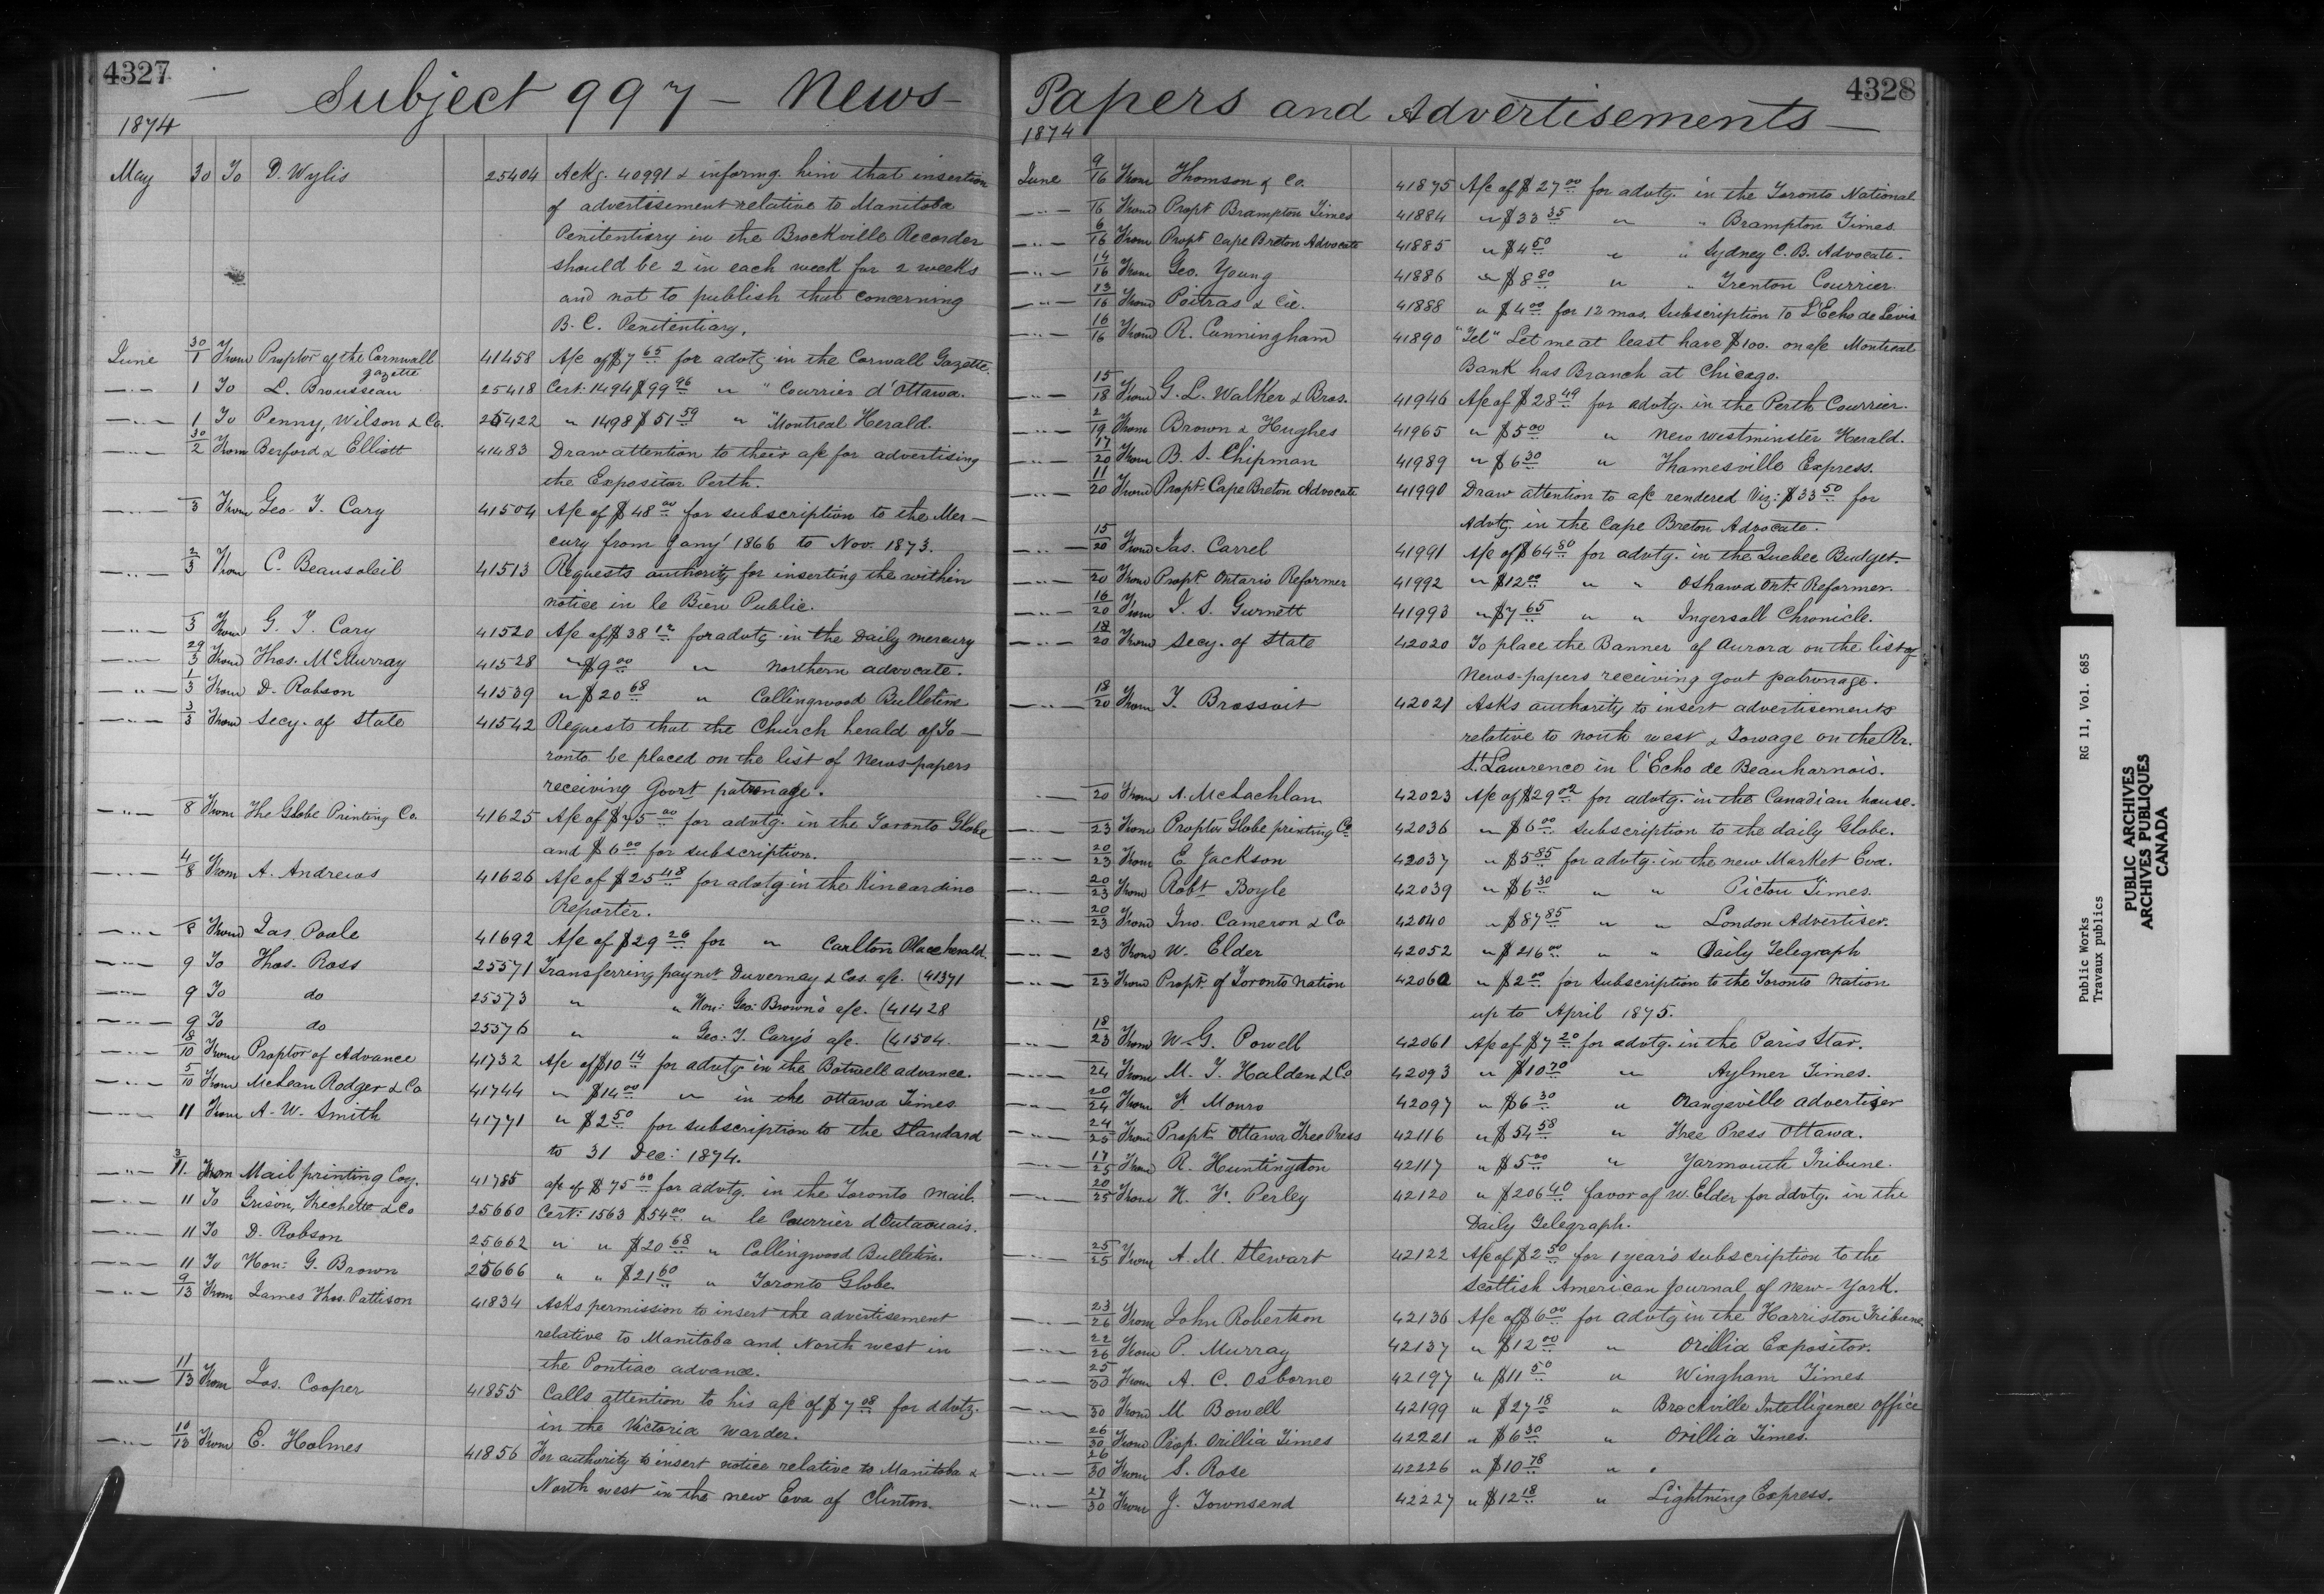 4327
— Subject 997 — News-
1874
May 30 To D. Wylis 25404 Ackg. 40991 & informg. him that insertion
of advertisement relative to Manitoba
Penitentiary in the Brockville Recorder
should be 2 in each week for 2 weeks
and not to publish that concerning
B. C. Penitentiary.
June 30/1 From Proptor of the Cornwall gazette 41458 A/c of $7 65 for advtg in the Corwall Gazette
—"— 1 To L. Brousseau 25418 Cert. 1494 $99 96 " " Courrier d'Ottawa.
—"— 1 To Penny, Wilson & Co. 25422 " 1498 $51 59 " " Montreal Herald.
—"— 30/2 From Berford & Elliott 41483 Draw attention to their a/c for advertising
the Expositor Perth.
—"— 3 From Geo. T. Cary 41504 A/c of $48 00 for subscription to the Mer-
cury from Jany' 1866 to Nov. 1873.
—"— 2/3 From C. Beausoleil 41513 Requests authority for inserting the within
notice in le Bien Public.
—"— 3 From G. T. Cary 41520 A/c of $38 12 for advtg in the Daily mercury
—"— 29/3 From Thos. McMurray 41528 " $9 00 " northern advocate.
—"— 1/3 From D. Robson 41539 " $20 68 " Collingwood Bulletin
—"— 3/3 From Secy. of State 41542 Requests that the Church herald of To-
ronto be placed on the list of News-papers
receiving Govrt patronage.
—"— 8 From The Globe Printing Co. 41625 A/c of $75 00 for advtg. in the Toronto Globe
and $6 00 for subscription.
—"— 4/8 From A. Andrews 41626 A/c of $25 48 for advtg in the Kincardine
Reporter.
—"— 8 From Jas. Poole 41692 A/c of $29 26 for " Carlton Place herald.
—"— 9 To Thos. Ross 25571 Transferring paymt Duvernay & Cos. a/c. (41371
—"— 9 To do 25573 " " Hon: Geo: Brown's a/c. (41428
—"— 9 To do 25576 " " Geo: T. Cary's a/c. (41504
—"— 8/10 From Proptor of Advance 41732 A/c of $10 14 for advtg in the Botwell advance.
—"— 5/10 From McLean Rodger & Co 41744 " $14 00 " in the Ottawa Times
—"— 11 From A. W. Smith 41771 " $2 50 for subscription to the Standard
to 31 Dec: 1874.
—"— 3/11. From Mail printing Coy. 41785 a/c of $75 00 for advtg. in the Toronto mail.
—"— 11 To Grison, Frechette & Co 25660 Cert: 1563 $54 00 " le Courrier d'Outaouais.
—"— 11 To D. Robson 25662 " " $20 68 " Collingwood Bulletin.
—"— 11 To Hon: G. Brown 25666 " " $21 60 " Toronto Globe.
—"— 9/13 From James Thos. Pattison 41834 Asks permission to insert the advertisement
relative to Manitoba and North west in
the Pontiac advance.
—"— 11/13 From Jos. Cooper 41855 Calls attention to his a/c of $7 08 for advtg.
in the Victoria Warder.
—"— 10/13 From E. Holmes 41856 For authority to insert notice relative to Manitoba &
North west in the new Era of Clinton.
4328
Papers and Advertisements —
1874
June 9/16 From Thomson & Co. 41875 A/c of $27 00 for advtg. in the Toronto National
—"— 16 From Propt. Brampton Times 41884 " $33 35 " " Brampton Times
—"— 6/16 From Propt. Cape Breton Advocate 41885 " $4 50 " " Sydney C. B. Advocate.
—"— 14/16 From Geo. Young 41886 " $8 80 " " Trenton Courrier.
—"— 13/16 From Poitras & Cie. 41888 " $4 00 for 12 mos. Subscription to L'Echo de Levis
—"— 16/16 From R. Cunningham 41890 "Tel" Let me at least have $100. on a/c Montreal
Bank has Branch at Chicago.
—"— 15/18 From G. L. Walker & Bros. 41946 A/c of $28 49 for advtg. in the Perth Courrier.
—"— 2/19 From Brown & Hughes 41965 " $5 00 " New westminster Herald.
—"— 17/20 From B. S. Chipman 41989 " $6 30 " Thamesville Express.
—"— 11/20 From Propt. Cape Breton Advocate 41990 Draw attention to a/c rendered Viz: $33 50 for
Advtg in the Cape Breton Advocate.
—"— 15/20 From Jas. Carrel 41991 A/c of $64 80 for advtg. in the Quebec Budget.
—"— 20 From Propt. Ontario Reformer 41992 " $12 00 " " Oshawa Ont. Reformer.
—"— 16/20 From J. S. Gurnett 41993 " $7 65 " " Ingersoll Chronicle.
—"— 18/20 From Secy. of State 42020 To place the Banner of Aurora on the list of
News-papers receiving Govt patronage.
—"— 18/20 From T. Brossoit 42021 Asks authority to insert advertisements
relative to north west & Towage on the Rr.
St. Lawrence in l'Echo de Beauharnois.
—"— 20 From A. McLachlan 42023 A/c of $29 02 for advtg. in the Canadian house.
—"— 23 From Proptor Globe printing Co 42036 " $6 00 Subscription to the daily Globe.
—"— 20/23 From E. Jackson 42037 " $5 85 for advtg. in the new Market Era.
—"— 20/23 From Robt Boyle 42039 " $6 30 " " Picton Times.
—"— 20/23 From Jno. Cameron & Co 42040 " $87 85 " " London Advertiser.
—"— 23 From W. Elder 42052 " $216 00 " " Daily Telegraph
—"— 23 From Propt. of Toronto Nation 42060 " $2 00 for Subscription to the Toronto Nation
up to April 1875.
—"— 18/23 From W. G. Powell 42061 A/c of $7 20 for advtg. in the Paris Star.
—"— 24 From M. T. Halden & Co 42093 " $10 70 " Aylmer Times.
—"— 20/24 From F. Monro 42097 " $6 30 " Orangeville advertiser
—"— 24/25 From Propt. Ottawa Free Press 42116 " $54 58 " Free Press Ottawa.
—"— 17/25 From R. Huntington 42117 " $5 00 " Yarmouth Tribune.
—"— 20/25 From H. F. Perley 42120 " $206 40 favor of W. Elder for advtg. in the
Daily Telegraph.
—"— 25/25 From A. M. Stewart 42122 A/c of $2 50 for 1 year's subscription to the
Scottish American Journal of New-York.
—"— 23/26 From John Robertson 42136 A/c of $6 00 for advtg in the Harriston Tribune.
—"— 22/26 From P. Murray 42137 " $12 00 " Orillia Expositor.
—"— 25/30 From A. C. Osborne 42197 " $11 50 " Wingham Times
—"— 30 From M Bowell 42199 " $27 18 " Brockville Intelligence Office
—"— 26/30 From Prop. Orillia Times 42221 " $6 30 " Orillia Times.
—"— 26/30 From S. Rose 42226 " $10 78 " "
—"— 27/30 From J. Townsend 42227 " $12 18 " Lightning Express.
Public Works RG 11, Vol. 685
Travaux publics
PUBLIC ARCHIVES
ARCHIVES PUBLIQUES
CANADA